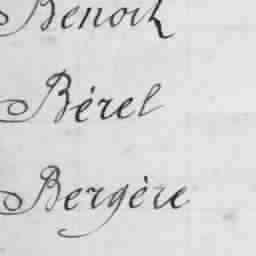 Benoit
Bérel
Bergère